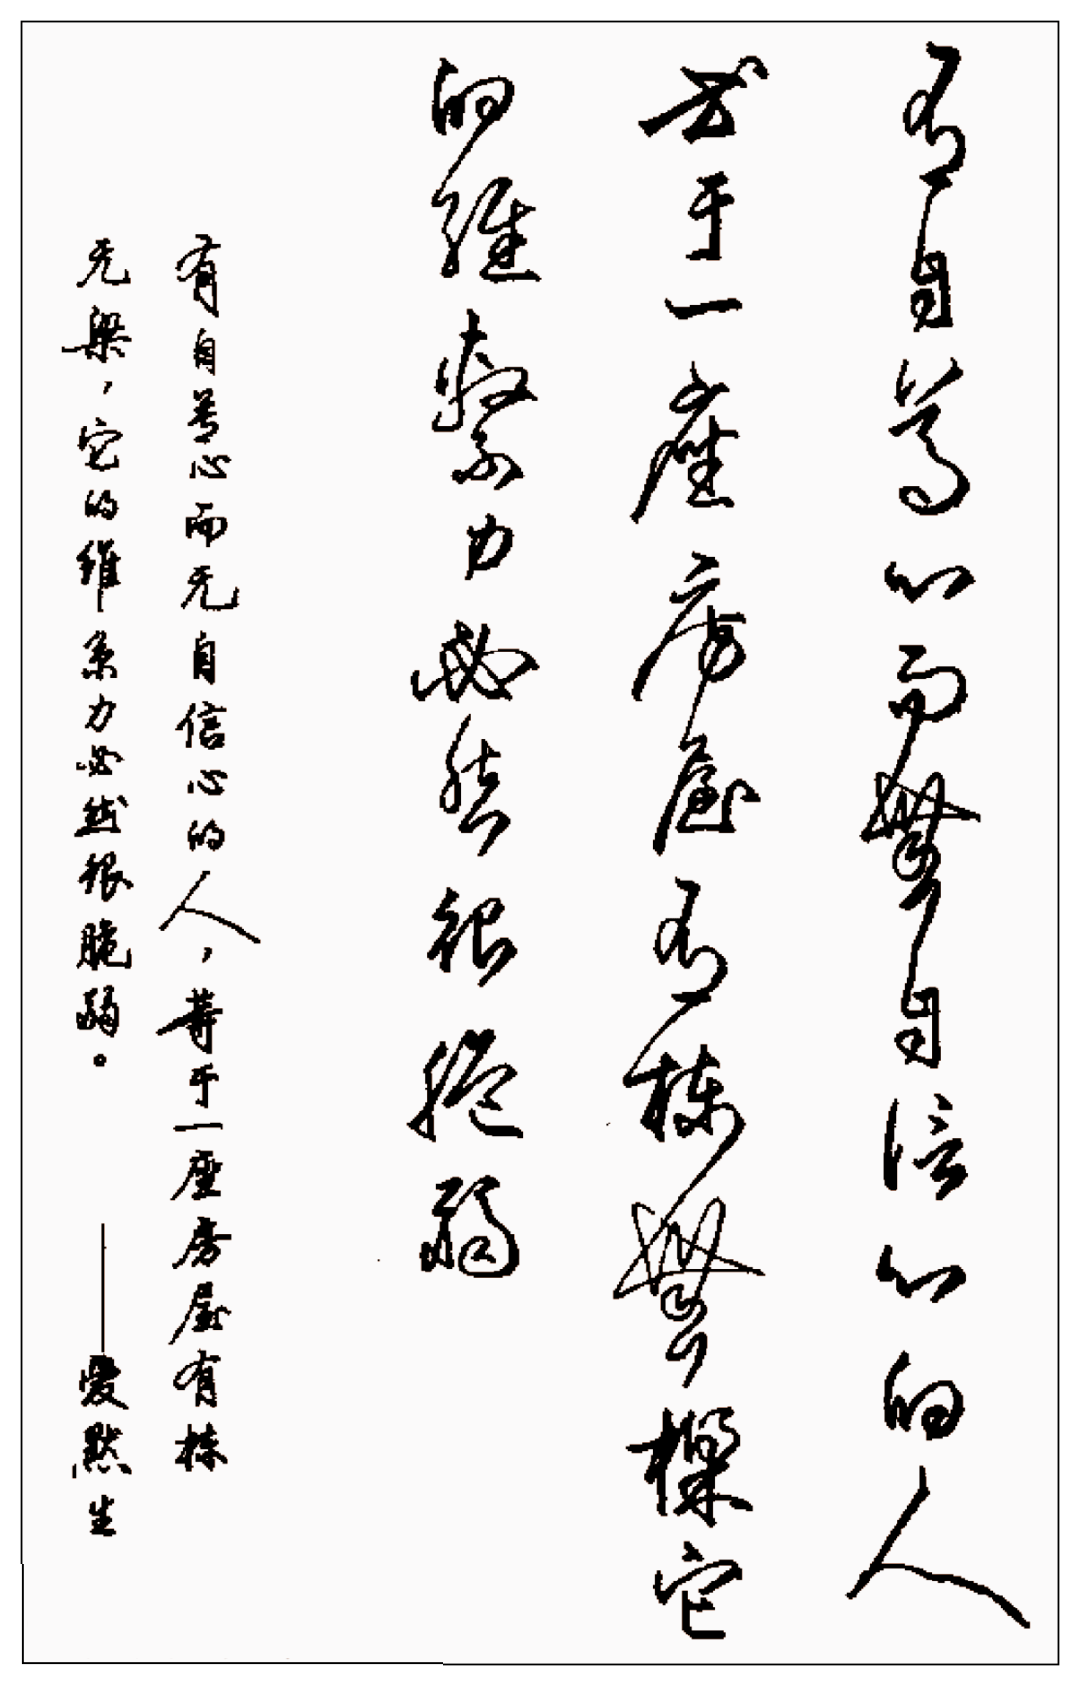 有自尊心而無自信心的人
等于一座房屋有栋無樑它
的維繫力必然很脆弱
有自尊心而无自信心的人，等于一座房屋有栋
无梁，它的维系力必然很脆弱。——爱默生